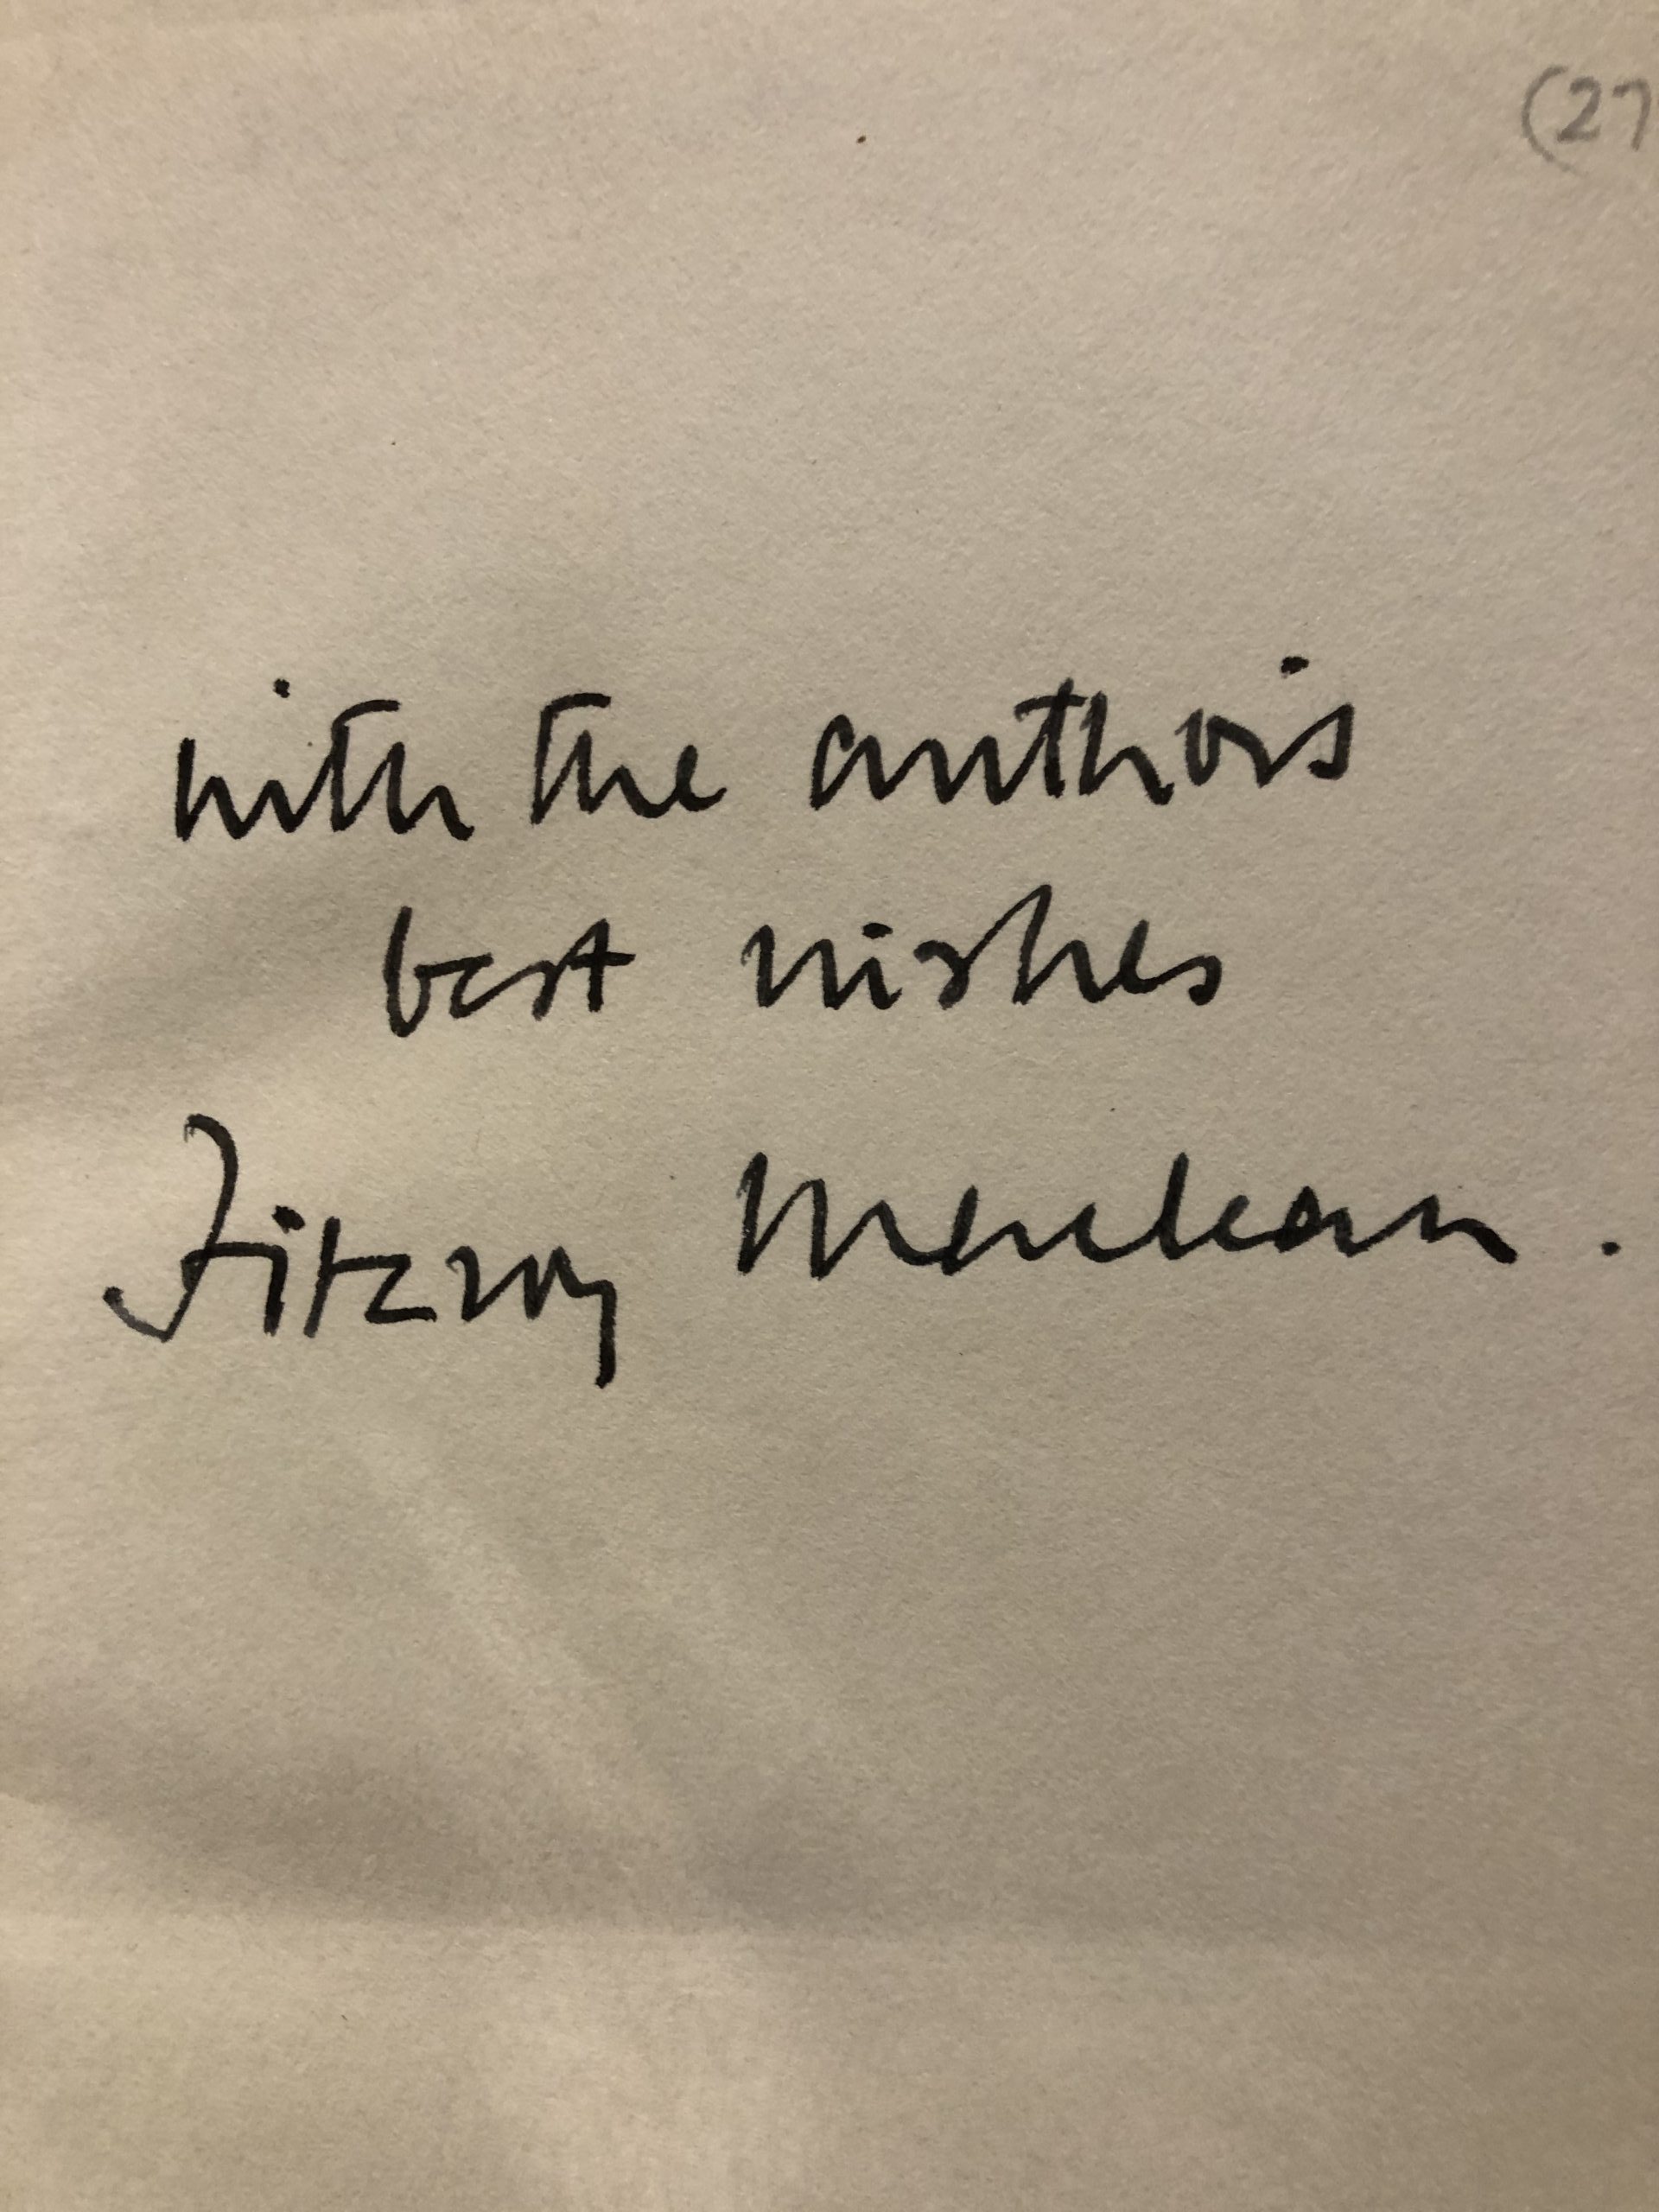 (27
with the author's
best wishes
Fitzroy Maclean.